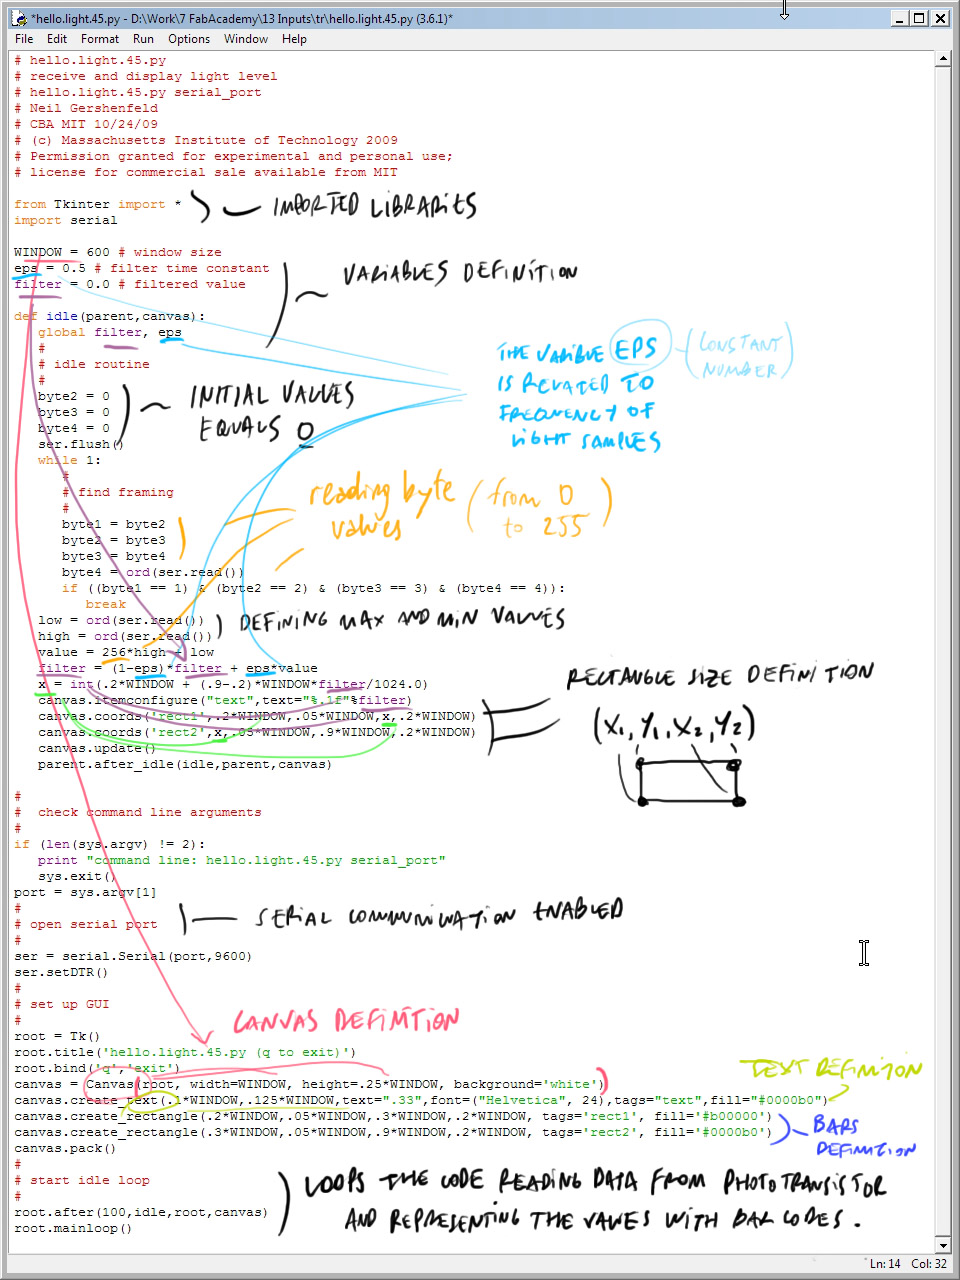 *hello.light.45.py - D:\Work\7 FabAcademy\13 Inputs\tr\hello.light.45.py (3.6.1)*
File Edit Format Run Options Window Help
# hello.light.45.py
# receive and display light level
# hello.light.45.py serial_port
# Neil Gershenfeld
# CBA MIT 10/24/09
# (c) Massachusetts Institute of Technology 2009
# Permission granted for experimental and personal use;
# license for commercial sale available from MIT
from Tkinter import *
import serial
IMPORTED LIBRARIES
WINDOW = 600 # window size
eps = 0.5 # filter time constant
filter = 0.0 # filtered value
VARIABLES DEFINITION
def idle(parent,canvas):
global filter, eps
#
# idle routine
#
byte2 = 0
byte3 = 0
byte4 = 0
ser.flush()
INITIAL VALUES
EQUALS 0
THE VARIBLE EPS
IS RELATED TO
FREQUENCY OF
LIGHT SAMPLES
(CONSTANT
NUMBER)
while 1:
#
# find framing
#
byte1 = byte2
byte2 = byte3
byte3 = byte4
byte4 = ord(ser.read())
reading byte (from 0
values to 255)
if ((byte1 == 1) & (byte2 == 2) & (byte3 == 3) & (byte4 == 4)):
break
low = ord(ser.read())
high = ord(ser.read())
DEFINING MAX AND MIN VALUES
value = 256*high + low
filter = (1-eps)*filter + eps*value
x = int(.2*WINDOW + (.9-.2)*WINDOW*filter/1024.0)
canvas.itemconfigure("text",text="%.1f"%filter)
canvas.coords('rect1',.2*WINDOW,.05*WINDOW,x,.2*WINDOW)
canvas.coords('rect2',x,.05*WINDOW,.9*WINDOW,.2*WINDOW)
canvas.update()
parent.after_idle(idle,parent,canvas)
RECTANGLE SIZE DEFINITION
(X1,Y1,X2,Y2)
#
# check command line arguments
#
if (len(sys.argv) != 2):
print "command line: hello.light.45.py serial_port"
sys.exit()
port = sys.argv[1]
#
# open serial port
#
SERIAL COMMUNICATION ENABLED
ser = serial.Serial(port,9600)
ser.setDTR()
#
# set up GUI
#
CANVAS DEFINITION
root = Tk()
root.title('hello.light.45.py (q to exit)')
root.bind('q','exit')
canvas = Canvas(root, width=WINDOW, height=.25*WINDOW, background='white')
canvas.create_text(.1*WINDOW,.125*WINDOW,text=".33",font=("Helvetica", 24),tags="text",fill="#0000b0")
canvas.create_rectangle(.2*WINDOW,.05*WINDOW,.3*WINDOW,.2*WINDOW, tags='rect1', fill='#b00000')
canvas.create_rectangle(.3*WINDOW,.05*WINDOW,.9*WINDOW,.2*WINDOW, tags='rect2', fill='#0000b0')
canvas.pack()
TEXT DEFINITION
BARS
DEFINITION
#
# start idle loop
#
root.after(100,idle,root,canvas)
root.mainloop()
LOOPS THE CODE READING DATA FROM PHOTOTRANSISTOR
AND REPRESENTING THE VALUES WITH BAR CODES.
Ln: 14 Col: 32